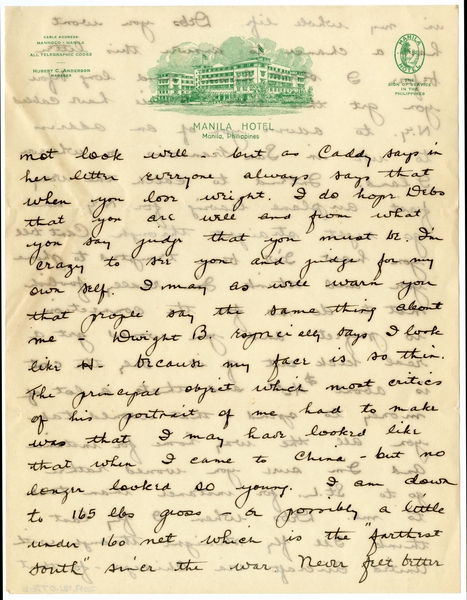 CABLE ADDRESS:
MANHOCO - MANILA
ALL TELEGRAPHIC CODES
HUBERT C. ANDERSON
MANAGER
MANILA
HOTEL
THE
SIGN OF SERVICE
IN THE
PHILIPPINES
MANILA HOTEL
Manila, Philippines
not look well - but as Caddy says in
her letter everyone always says that
when you lose wright. I do hope Debs
that you are well and from what
you say judge that you must be. I'm
crazy to see you and judge for my
own self. I may as well warn you
that people say the same thing about
me - Dwight B. especially says I look
like H- because my face is so thin.
The principal object which most critics
of his portrait of me had to make
was that I may have looked like
that when I came to China - but no
longer looked so young. I am down
to 165 lbs gross - or possibly a little
under 160 net which is the "farthest
south" since the war. Never felt better